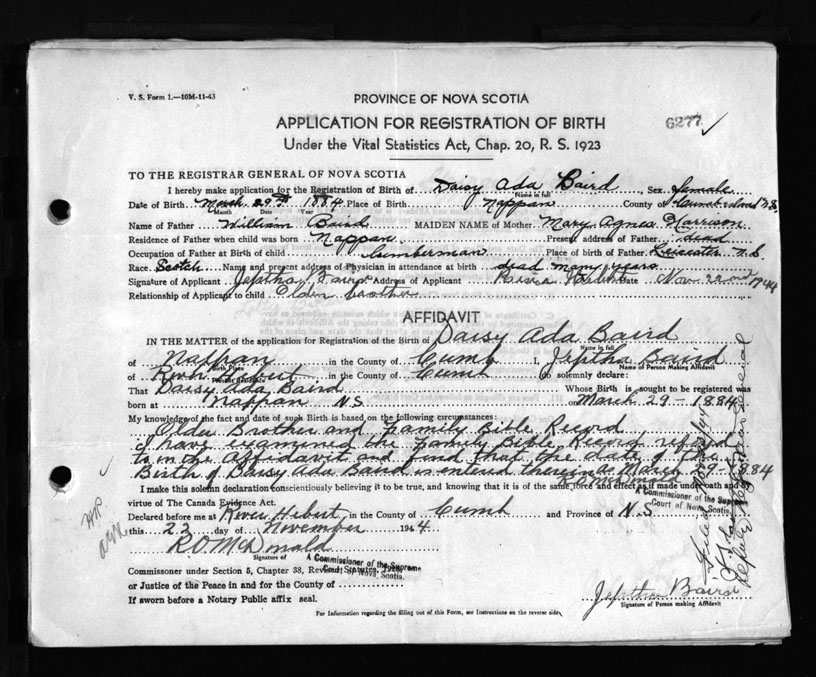 V. S. Form 1.—10M-11-43
PROVINCE OF NOVA SCOTIA
APPLICATION FOR REGISTRATION OF BIRTH
6277 ✓
Under the Vital Statistics Act, Chap. 20, R. S. 1923
TO THE REGISTRAR GENERAL OF NOVA SCOTIA
I hereby make application for the Registration of Birth of Daisy Ada Baird, Sex female
Name in full
Date of Birth March 29th 1884 Place of Birth Nappan County Cumberland N.S.
Month Date Year
Name of Father William Baird MAIDEN NAME of Mother Mary Agnes Harrison
Residence of Father when child was born Nappan Present address of Father dead
Occupation of Father at Birth of child Lumberman Place of Birth of Father Leicester N.S.
Race Scotch Name and present address of Physician in attendance at birth dead many years
Signature of Applicant Jeptha Baird Address of Applicant River Hebert Date Nov 22nd 1944
Relationship of Applicant to child Older brother
AFFIDAVIT
IN THE MATTER of the application for Registration of the Birth of Daisy Ada Baird
Name in full
of Nappan in the County of Cumb I, Jeptha Baird
Birth Place Name of Person Making Affidavit
of River Hebert in the County of Cumb do solemnly declare:
Present Residence
That Daisy Ada Baird Whose Birth is sought to be registered was
born at Nappan N S on March 29 - 1884
My knowledge of the fact and date of such Birth is based on the following circumstances:
Older Brother and Family Bible Record
I have examined the Family Bible Record referred
to in the Affidavit and find that the date of the
Birth of Daisy Ada Baird is entered therein as March 29-1884
R.O. McDonald
I make this solemn declaration conscientiously believing it to be true, and knowing that it is of the same force and effect as if made under oath and by
virtue of The Canada Evidence Act.
A Commissioner of the Supreme
Court of Nova Scotia
Declared before me at River Hebert in the County of Cumb and Province of N.S
this 22 day of November 1944
R.O. McDonald
Signature of
A Commissioner of the Supreme
Court of Nova Scotia.
Commissioner under Section 5, Chapter 38, Revised Statutes, 1923,
or Justice of the Peace in and for the County of
If sworn before a Notary Public affix seal.
Jeptha Baird
Signature of Person making Affidavit
For Information regarding the filling out of this Form, see Instructions on the reverse side.
Filed Nov